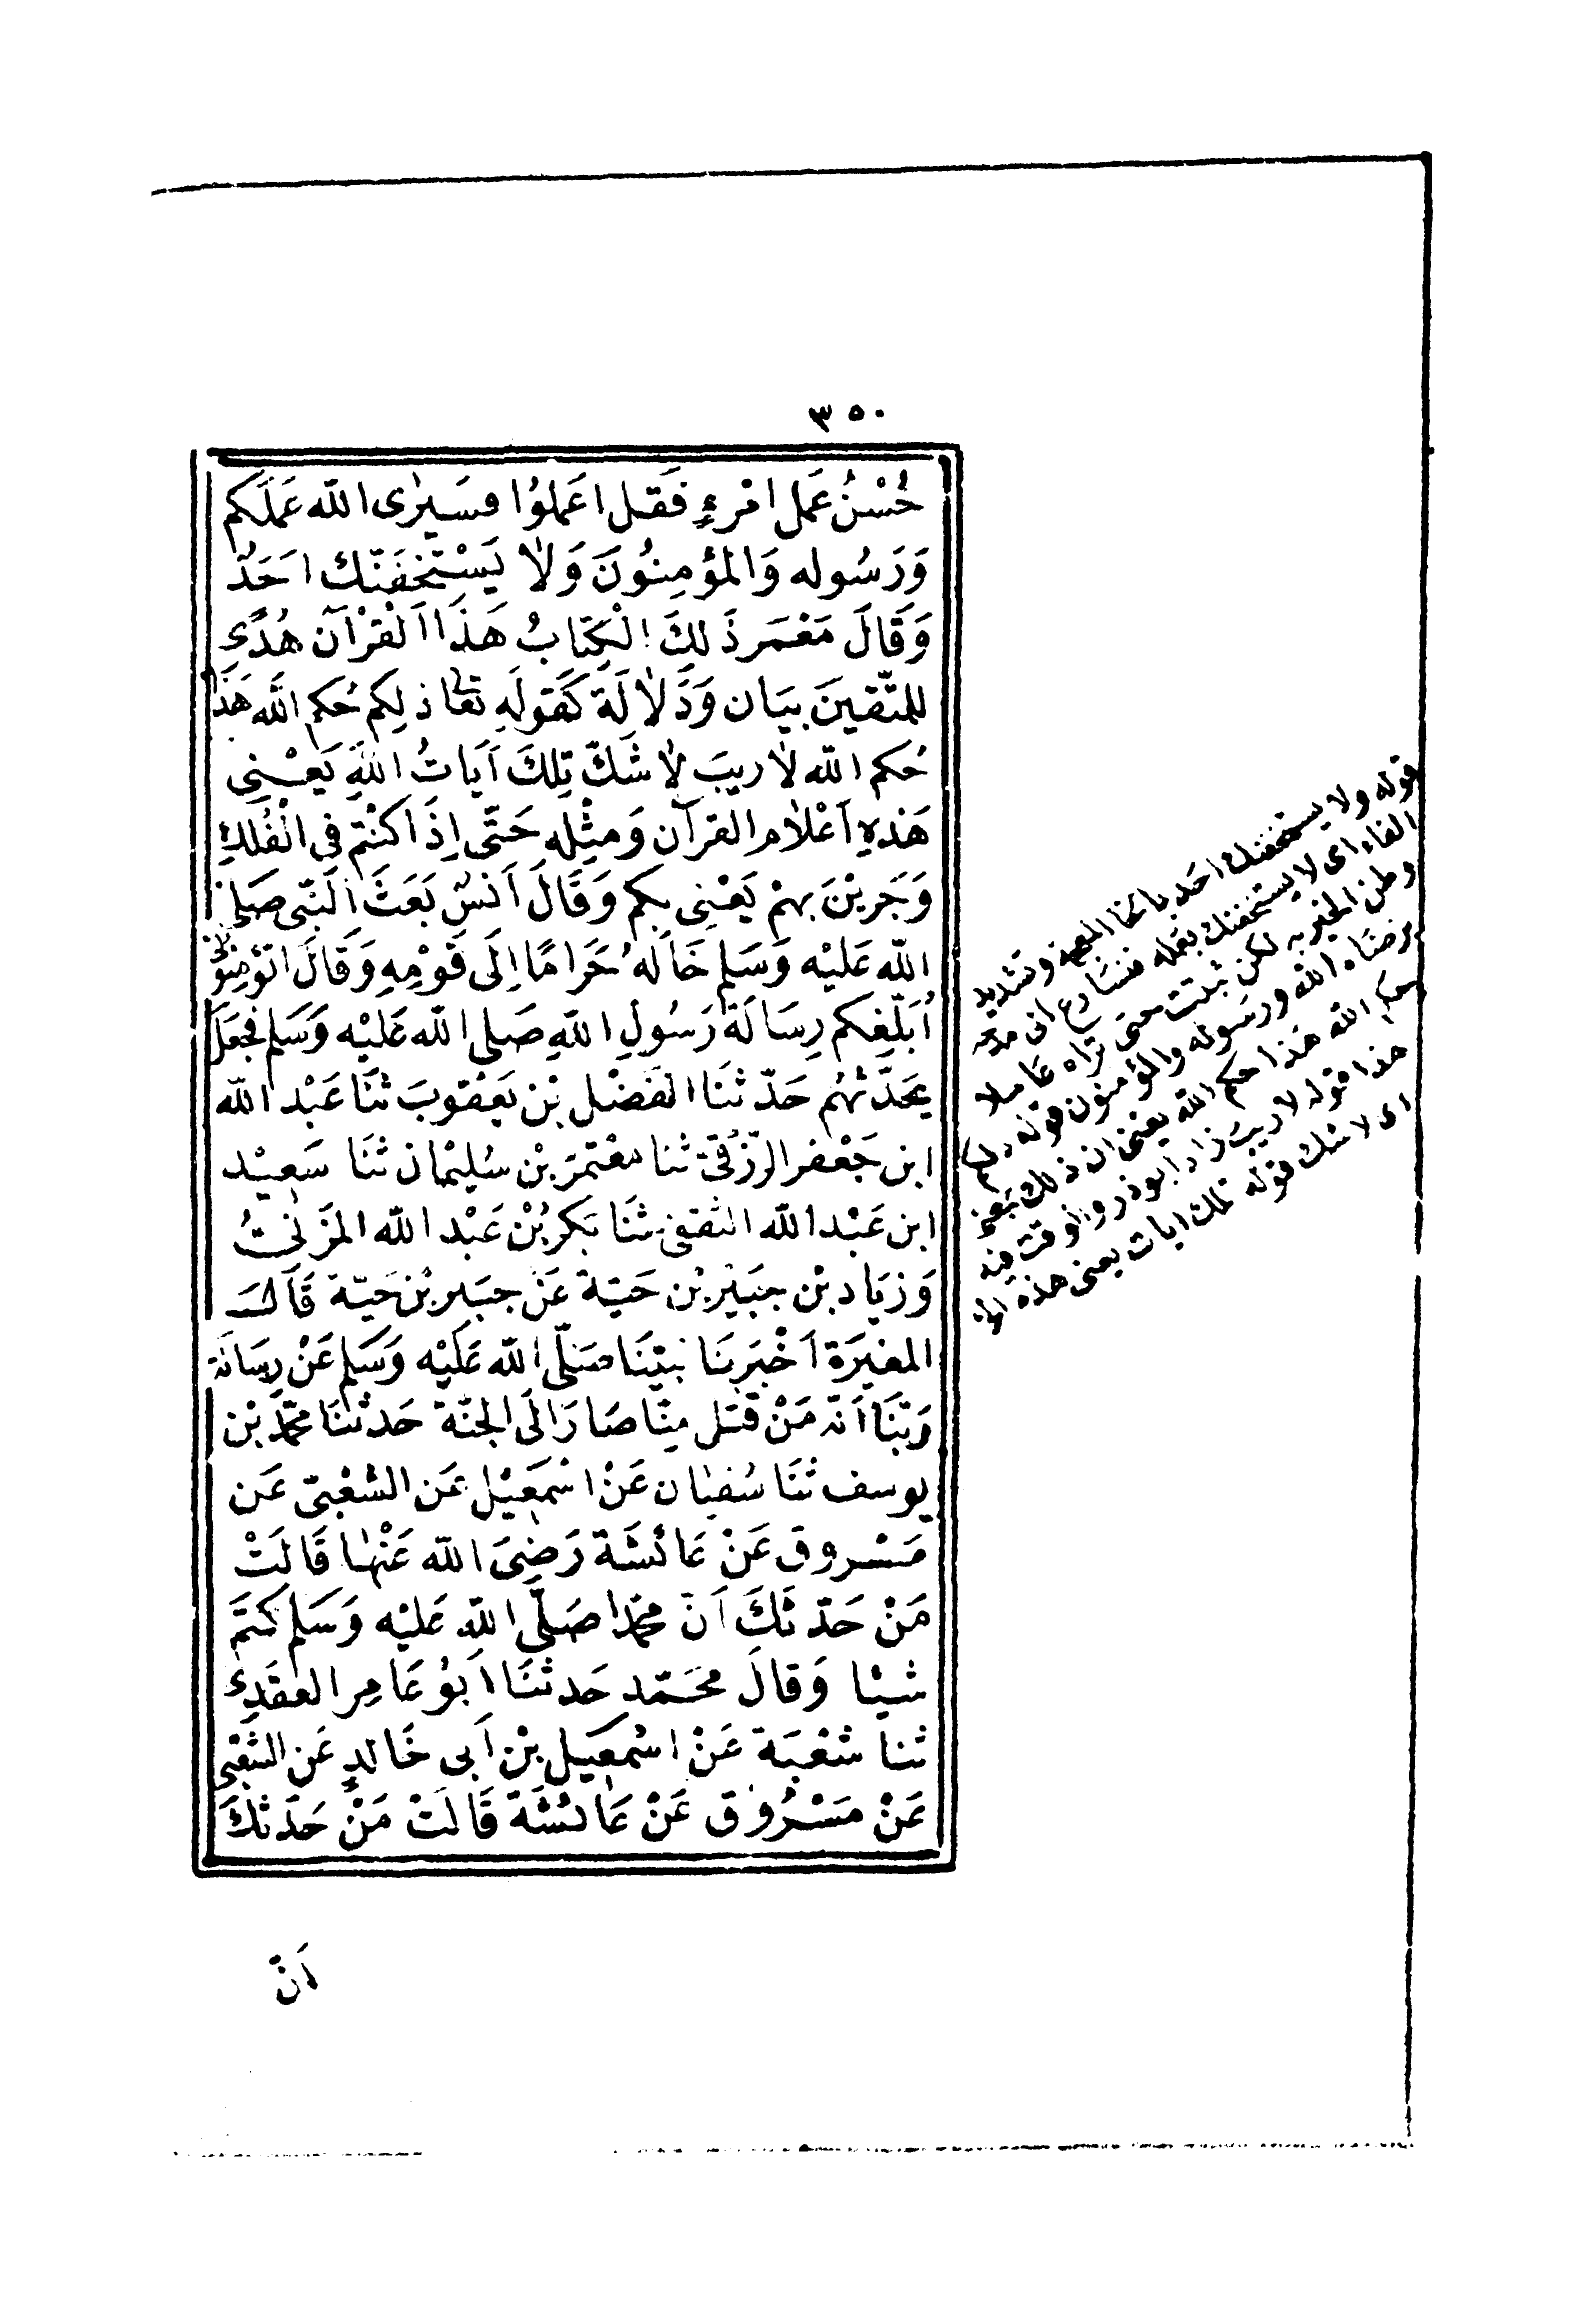 ٣٥٠
حُسْنُ عَمَل امْرءٍ فَقل اعَملوُا فسَيرٰى الله عَمَلَكم
وَرَسُوله وَالمؤمِنوُنَ وَلاٰ يَسْتَخفَنّك احَدٌ
وَقَالَ مَعْمَر ذَلِكَ الْكِتَابُ هَذَا اَلْقرْآن هُدًى
لِلمتّقينَ بِيَان وَدَلاٰلَة كَقولَهِ تَعَا ذلِكم حُكم الله هَذَا
حُكم الله لاٰ ريبَ لاٰ شَكّ تِلكَ آيَاتُ اللهِ يَعْنِى
هَذِهِ اَعْلاٰم القرآن وَمثِله حَتّى اِذَا كنْتم فِى الْفُلكِ
وَجَريْنَ بِهمْ يَعْنِى بِكم وَقَالَ اَنسٌ بَعَثَ النّبى صَلى
الله عَليْه وَسَلم خَالَهُ حَرَامًا اِلَى قَوْمِهِ وَقَالَ اتؤمِنوُنى
اُبَلّغكم رِسَالَة رَسُولِ اللهِ صَلى الله عَليْه وَسَلم فجَعَلَ
يحَدّثهُم حَدّثنَا الفَضْل بْن يَعْقوبَ ثنَا عَبْد الله
ابن جَعْفر الرّقىّ ثنا معْتمَر بْن سُليْمان ثنَا سَعِيْد
ابن عَبْد الله الثقفى ثنَا بَكر بْن عَبْد الله المزَنىُّ
وَزيَاد بْن جبَيْر بْن حَيّة عَنْ جبَير بْن حَيّة قَالَ
المغيرَة اَخْبَرنَا نبيّنَا صَلّى الله عَليْه وَسَلم عَنْ رِسَالَة
رَبّنَا اَنّه مَنْ قتل مِنّا صَارَ اِلَى الجنّة حَدثنَا محَمّد بْن
يوسف ثنَا سُفيٰان عَنْ اسْمعَيْل عَن الشعْبىّ عَن
مَسْروق عَنْ عَائشَة رَضِىَ الله عَنْهٰا قَالَتْ
مَنْ حَدّثكَ اَنّ محمّدا صَلّى الله عَليْه وَسَلم كتمَ
شيْا وَقالَ محَمّد حَدثنَا اَبوُ عَامِر العَقَدِى
ثنا شعْبَة عَنْ اسْمعِيل بْن اَبى خَالدٍ عَن الشعْبى
عَنْ مسْرُوق عَنْ عَائشَة قَالَتْ مَنْ حَدّثكَ
قوله ولا يستخفنك احَد بالخا المعجمة وتشديد
الفاء اى لا يستخفنك بعمله فتسَارع الى مدحه
وظن الخير به لكن تثبت حتى تراه عَاملا
برضاه الله ورسوله والمؤمنون قوله ذلكم
حكم الله هذا حكم الله يعنى ان ذلك بمعنى
هذا قوله لا ريب زاد ابوذر والوقت فيه
اى لا شك قوله تلك ايات يعنى هذه
اَنّ